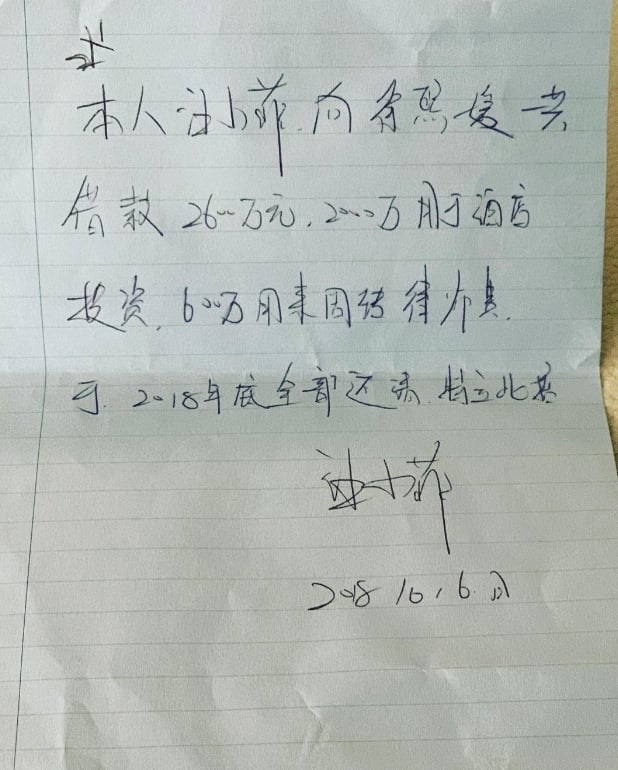 本人汪小菲向徐熙媛共
借款2600万元.2000万用于酒店
投资,600万用来周转律师费.
于.2018年底全部还清.特立此
汪小菲
2018 10,6.